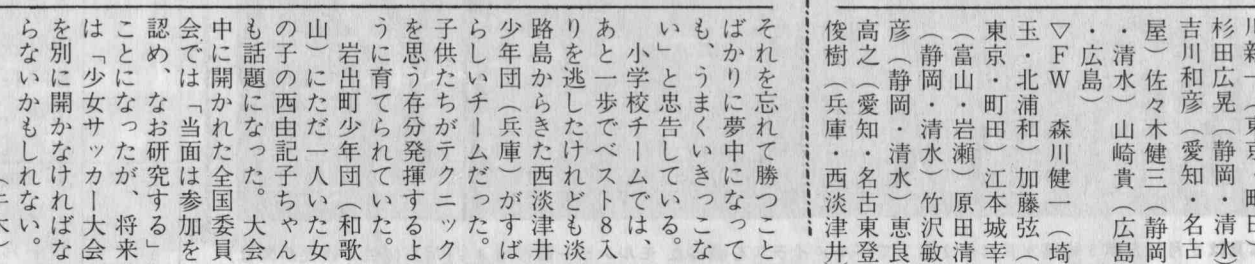 杉田広晃（静岡・清水）
吉川和彦（愛知・名古
屋）佐々木健三（静岡
・清水）山崎貴（広島
・広島）
▽ＦＷ　森川健一（埼
玉・北浦和）加藤弦（
東京・町田）江本城幸
（富山・岩瀬）原田清
（静岡・清水）竹沢敏
彦（静岡・清水）恵良
高之（愛知・名古東登
俊樹（兵庫・西淡津井
それを忘れて勝つこと
ばかりに夢中になって
も、うまくいきっこな
い」と忠告している。
　小学校チームでは、
あと一歩でベスト８入
りを逃したけれども淡
路島からきた西淡津井
少年団（兵庫）がすば
らしいチームだった。
子供たちがテクニック
を思う存分発揮するよ
うに育てられていた。
　岩出町少年団（和歌
山）にただ一人いた女
の子の西由記子ちゃん
も話題になった。大会
中に開かれた全国委員
会では「当面は参加を
認め、なお研究する」
ことになったが、将来
は「少女サッカー大会
を別に開かなければな
らないかもしれない。